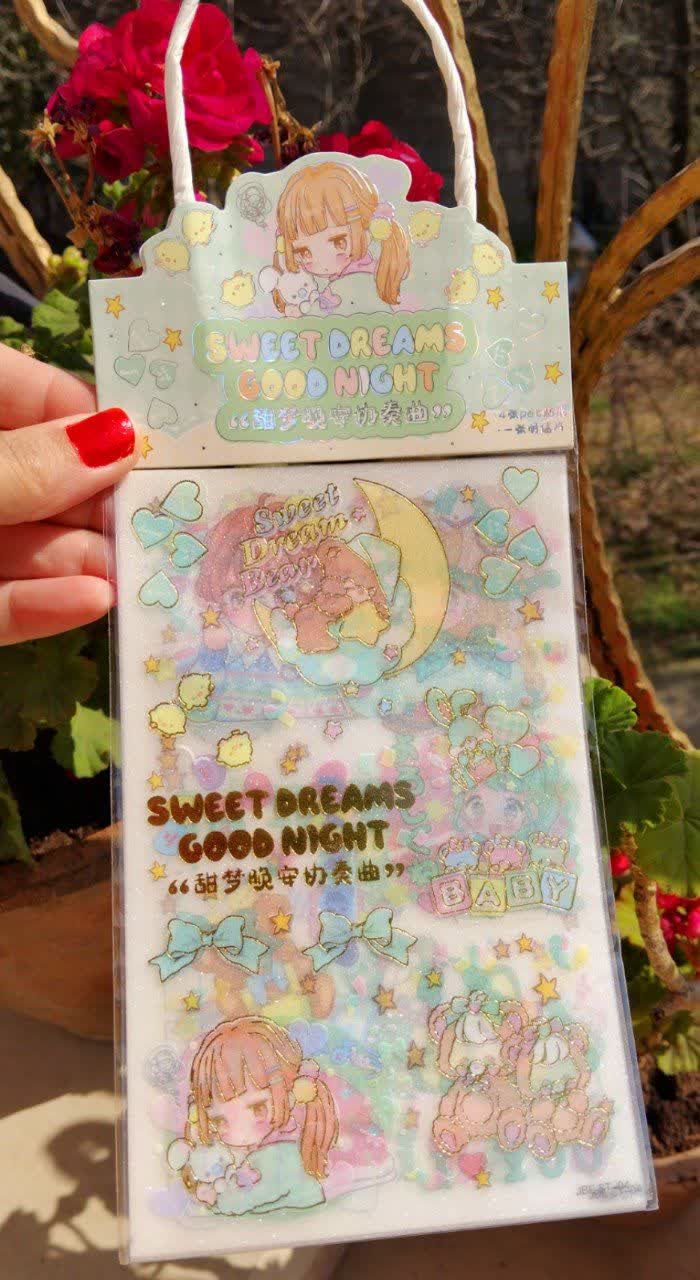 SWEET DREAMS
GOOD NIGHT
“甜梦晚安协奏曲”
4张pet贴纸
一张明信片
Sweet
Dream
Bear
SWEET DREAMS
GOOD NIGHT
“甜梦晚安协奏曲”
BABY